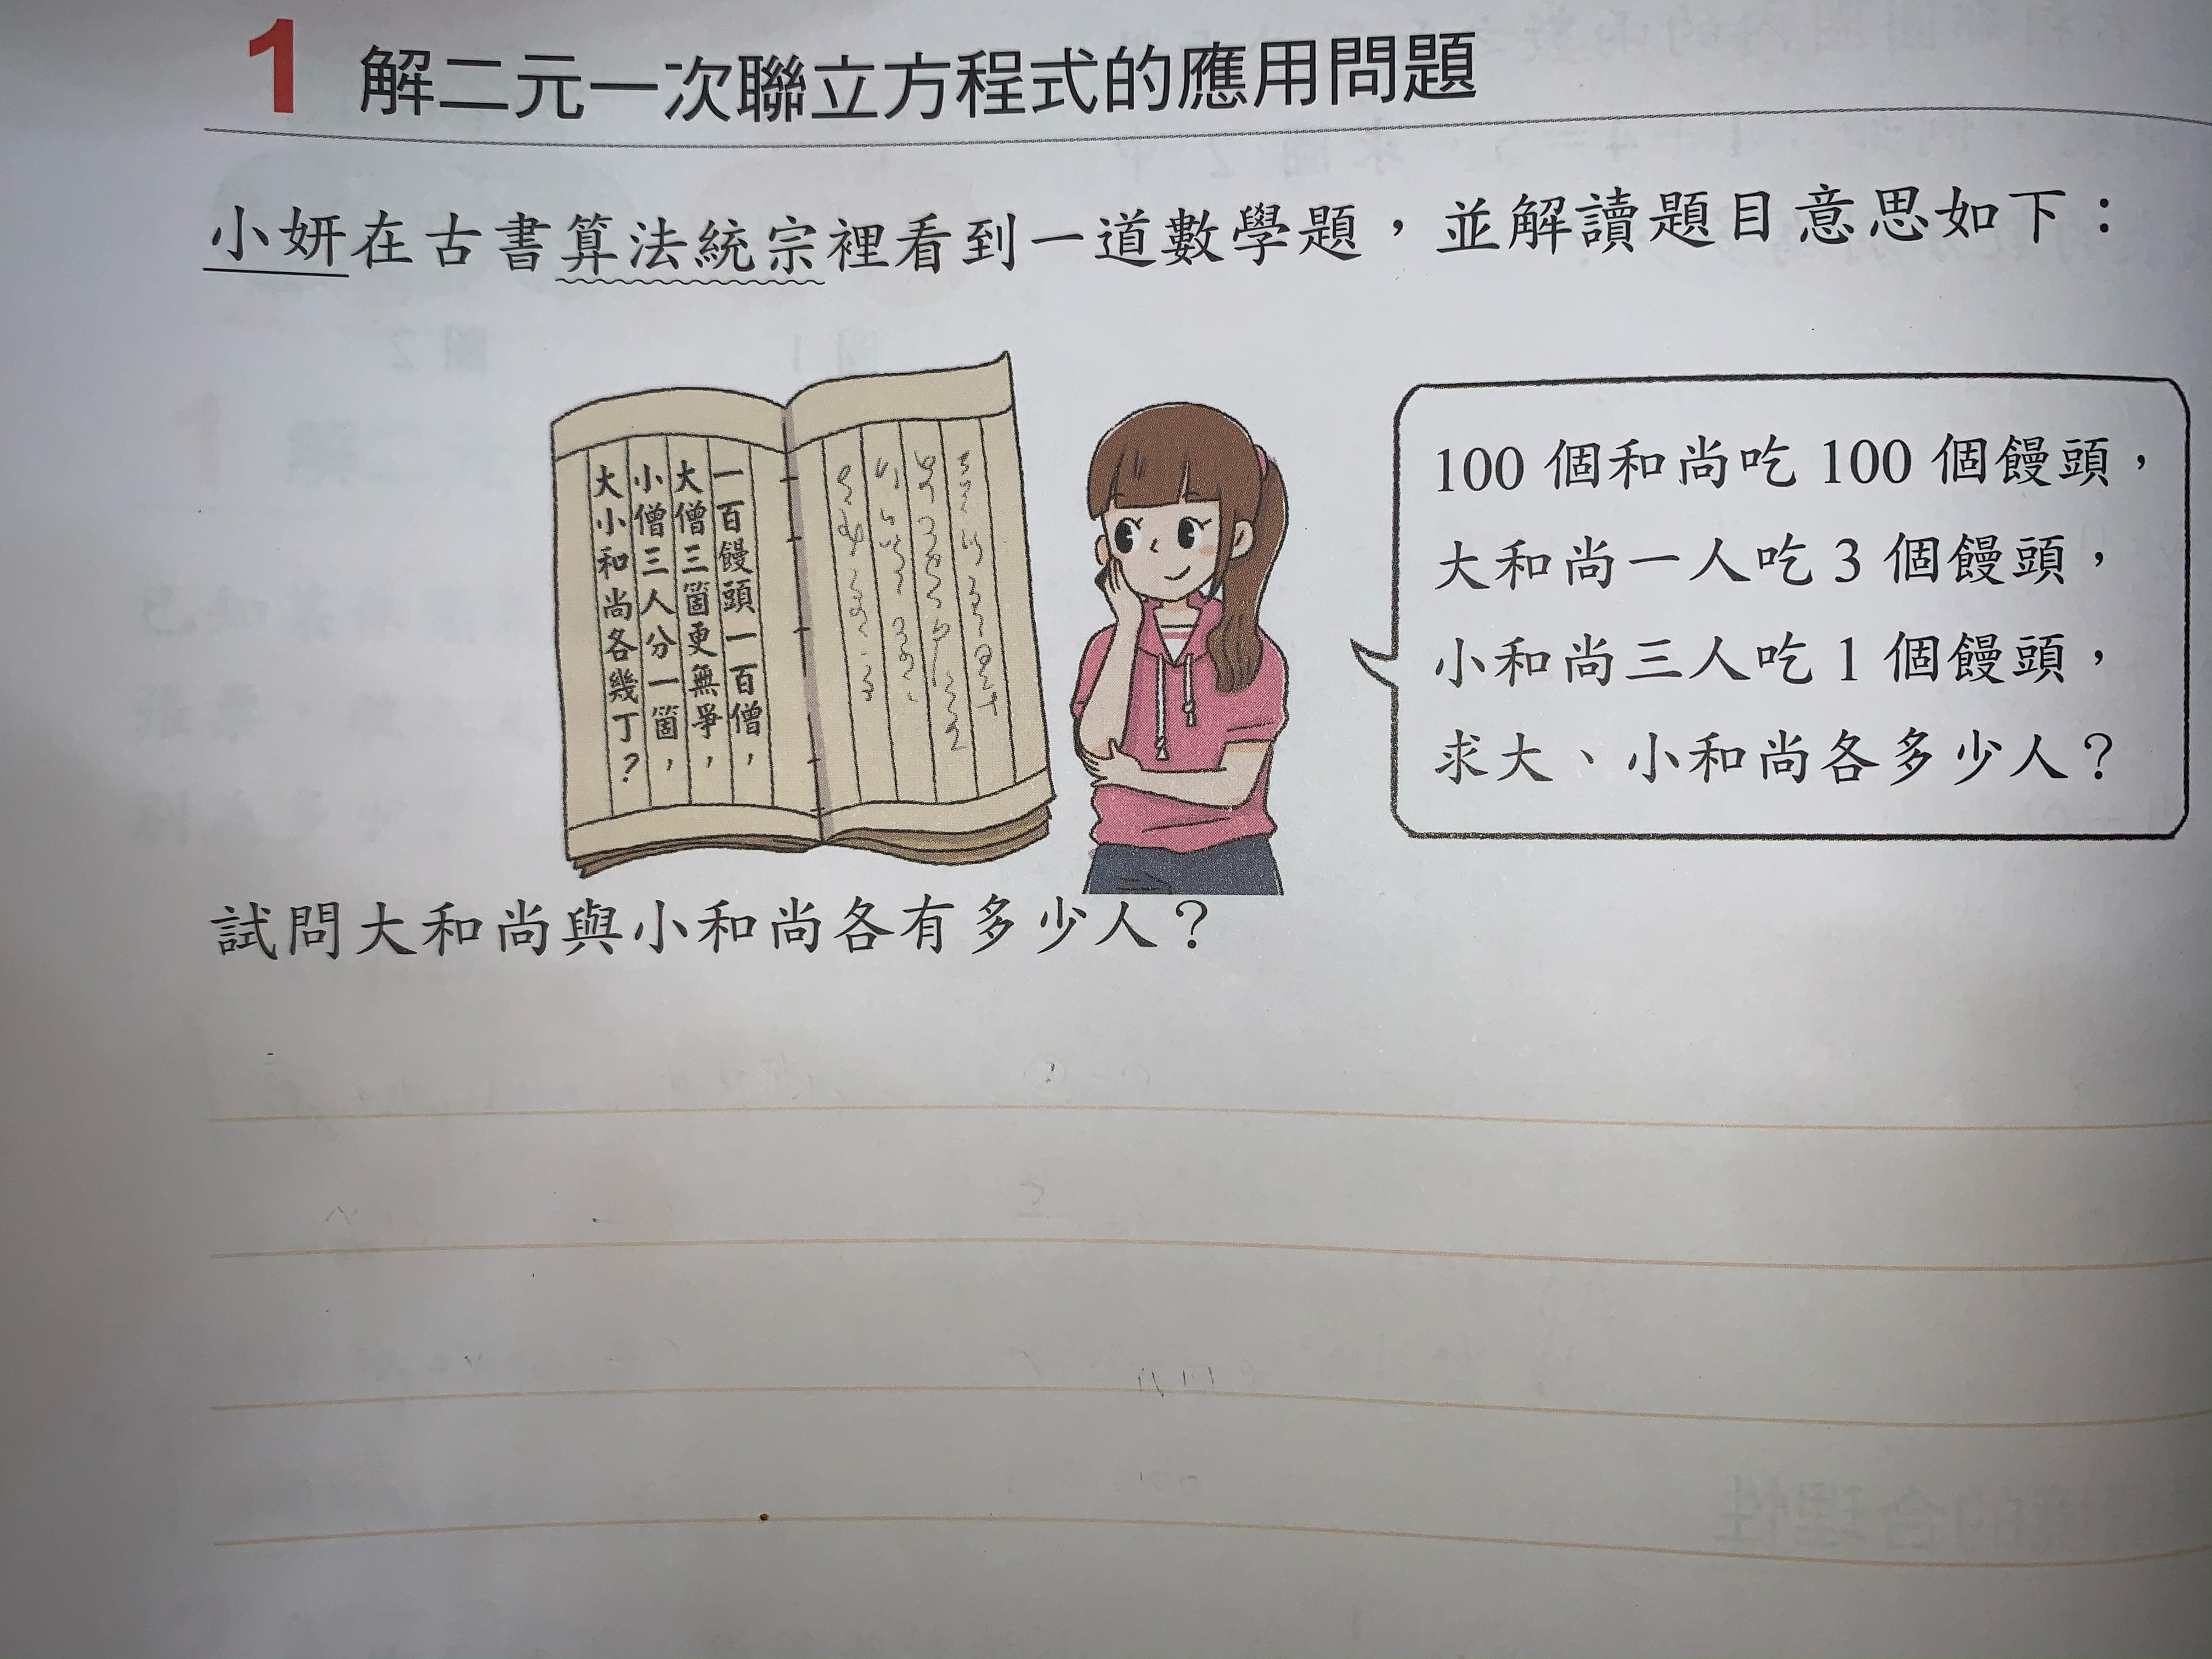 1 解二元一次聯立方程式的應用問題
小妍在古書算法統宗裡看到一道數學題，並解讀題目意思如下：
一百饅頭一百僧，
大僧三箇更無爭，
小僧三人分一箇，
大小和尚各幾丁？
100 個和尚吃 100 個饅頭，
大和尚一人吃 3 個饅頭，
小和尚三人吃 1 個饅頭，
求大、小和尚各多少人？
試問大和尚與小和尚各有多少人？